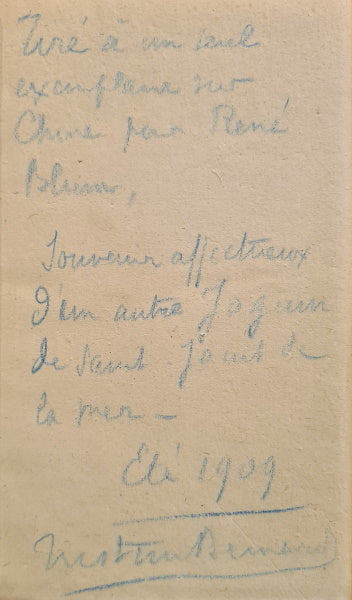 Tiré à un seul
exemplaire sur
Chine pour René
Blum,
Souvenir affectueux
d'un autre Jaguin
de Saint Jacut de
la mer —
Été 1909
Tristan Bernard